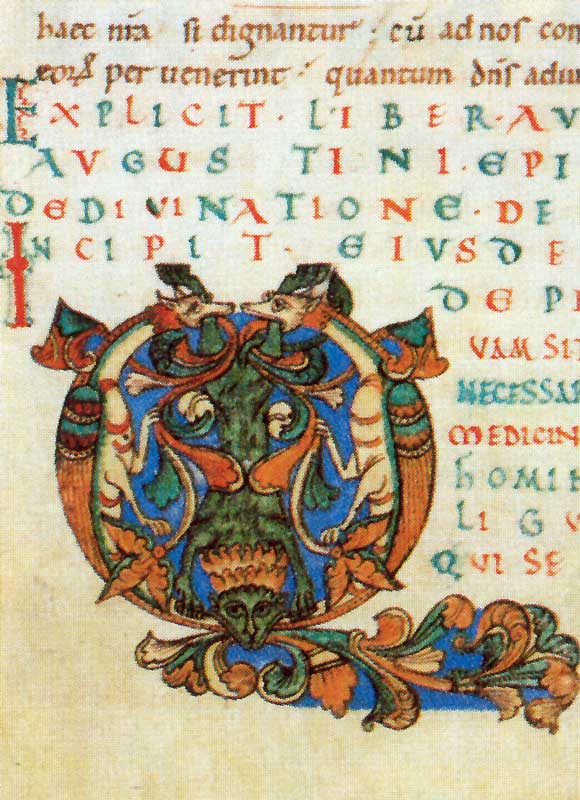 haec nr̄a si dignantur. cū ad nos con
peruenerint. quantum dn̄s adiu
EXPLICIT. LIBER. AV
AVGUSTINI. EPI
DE DIVINATIONE. DE
INCIPIT. EIVSDE
DE PE
QVAM SIT
NECESSAR
MEDICIN
HOMI
LI GU
QVI SE